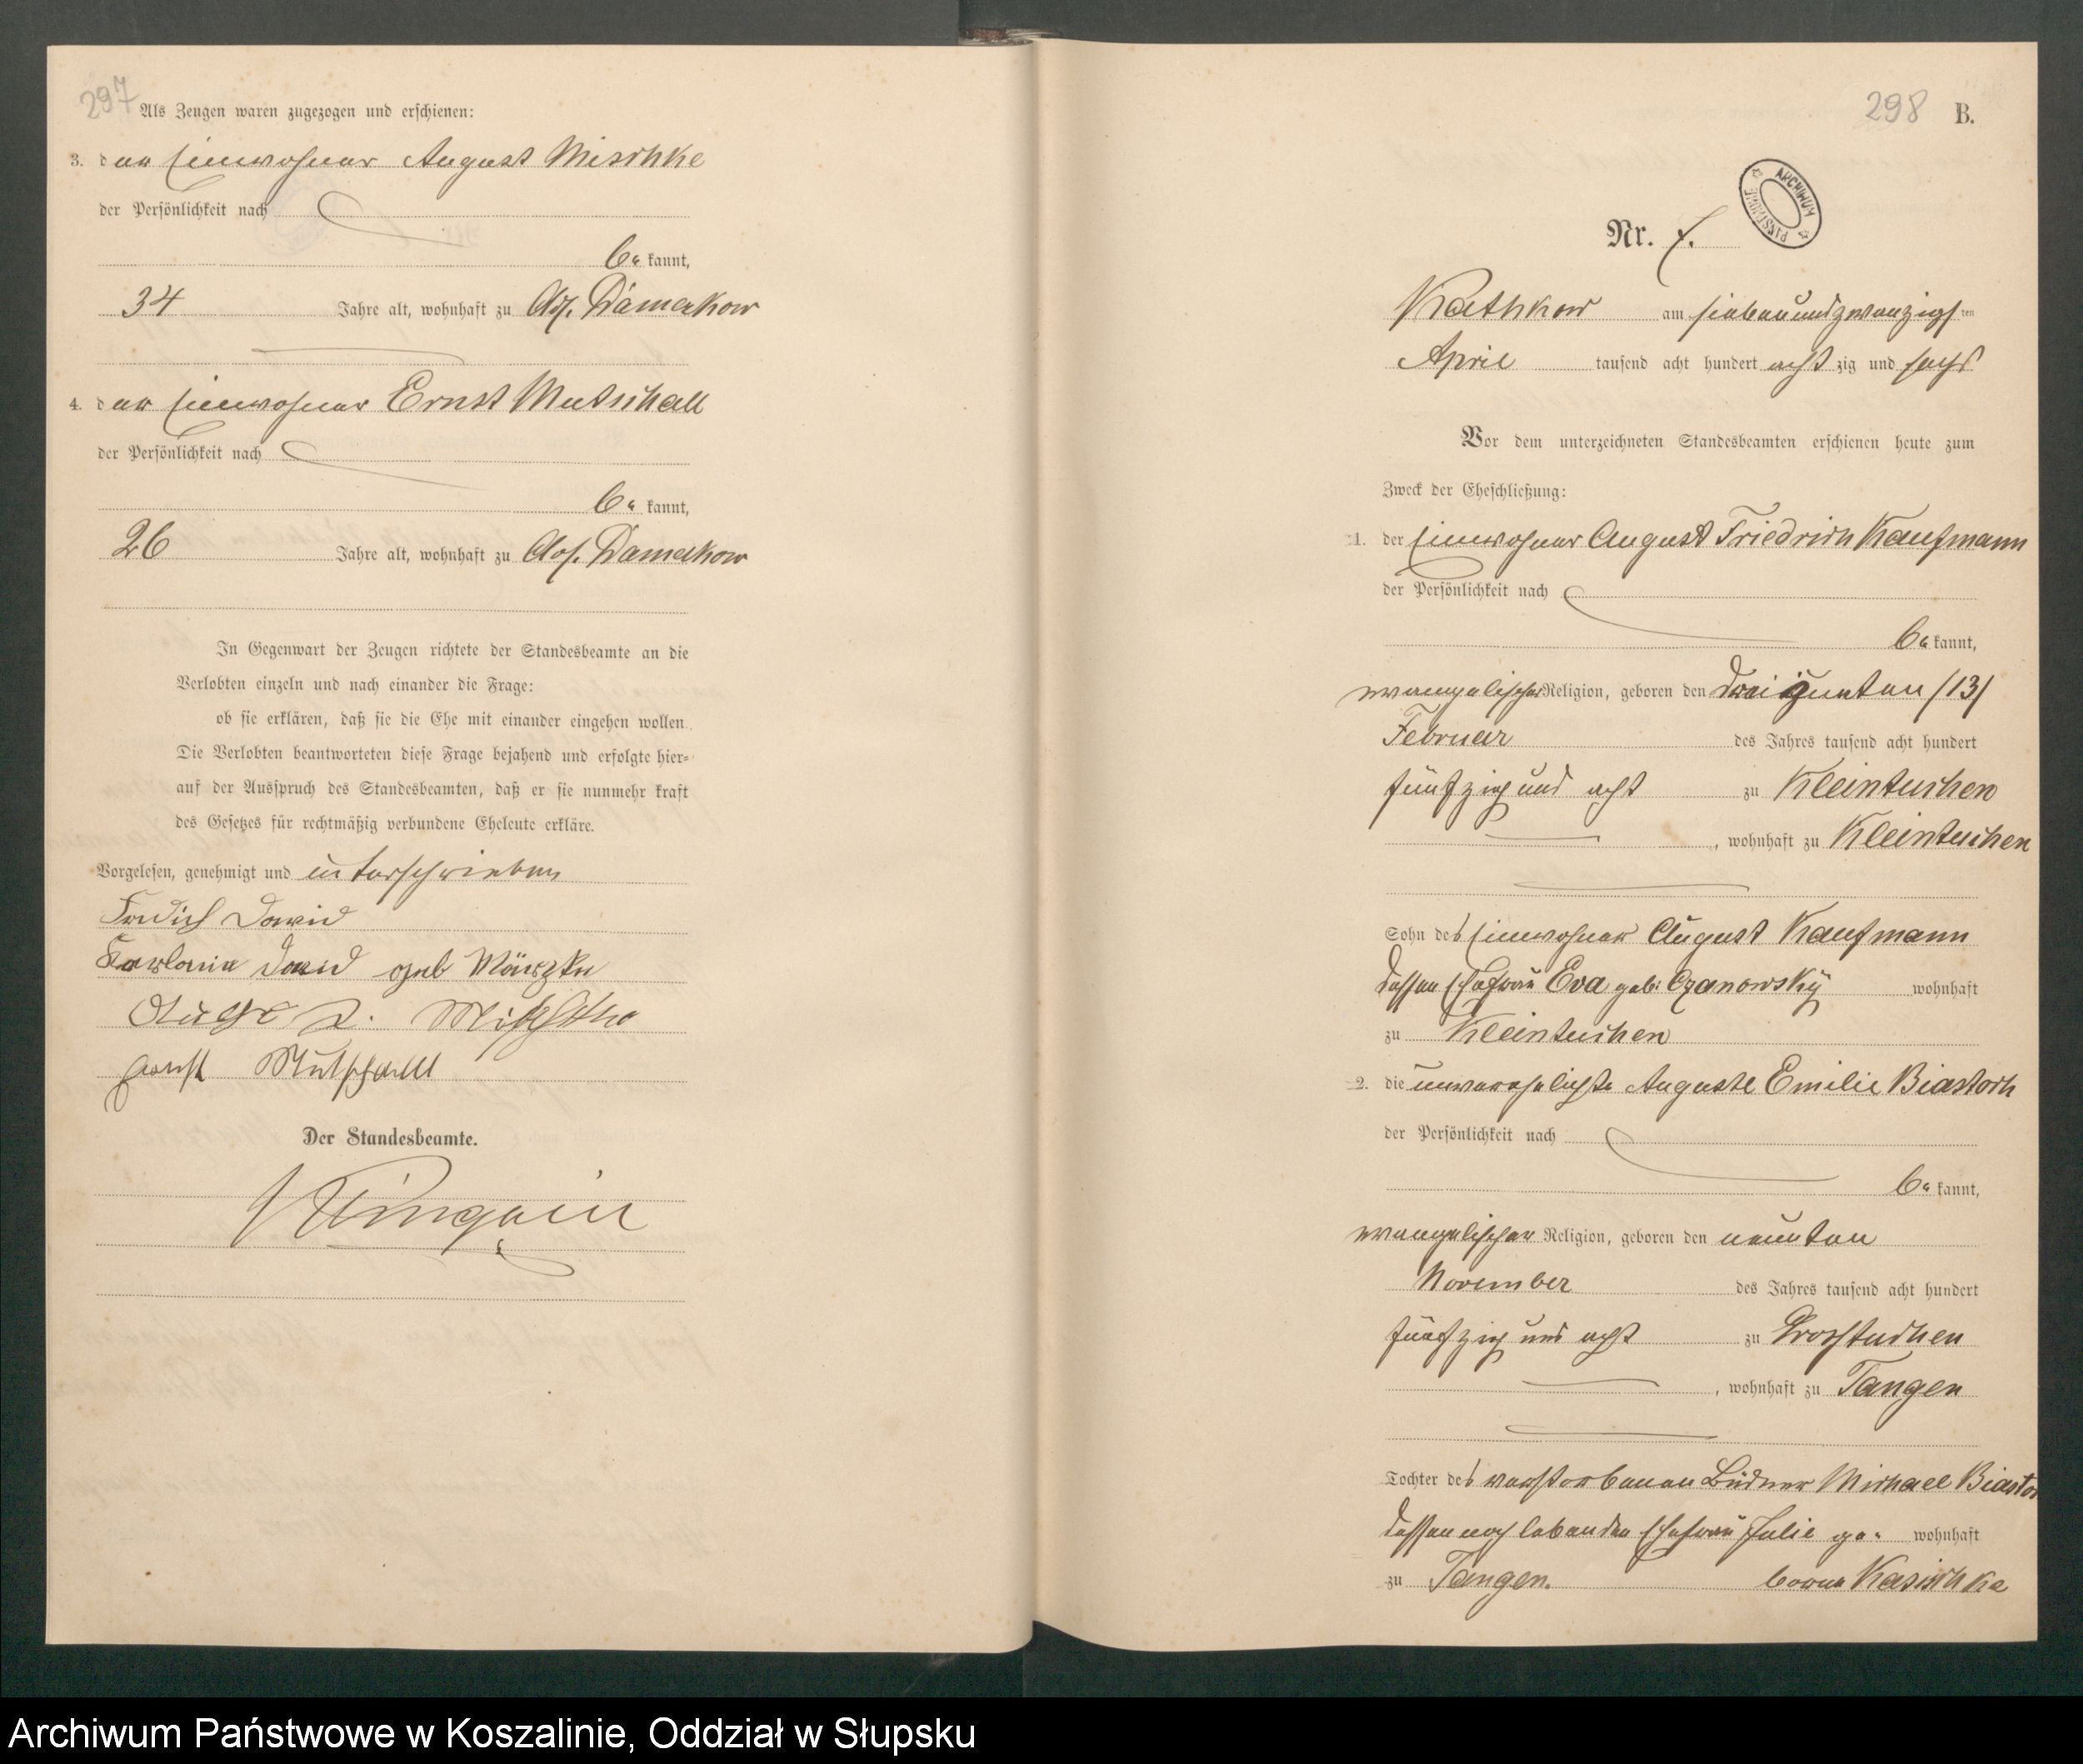 297
Als Zeugen waren zugezogen und erschienen:
3. der Einwohner August Mischke
der Persönlichkeit nach
be kannt,
34 Jahre alt, wohnhaft zu Adl. Damerkow
4. der Einwohner Ernst Mutschall
der Persönlichkeit nach
be kannt,
26 Jahre alt, wohnhaft zu Adl. Damerkow
In Gegenwart der Zeugen richtete der Standesbeamte an die
Verlobten einzeln und nach einander die Frage:
ob sie erklären, daß sie die Ehe mit einander eingehen wollen.
Die Verlobten beantworteten diese Frage bejahend und erfolgte hier-
auf der Ausspruch des Standesbeamten, daß er sie nunmehr kraft
des Gesetzes für rechtmäßig verbundene Eheleute erkläre.
Vorgelesen, genehmigt und unterschrieben
David
David geb
Mutschall
Der Standesbeamte.
298 B.
ARCHIWUM PAŃSTWOWE
Nr. 7.
Kathkow am siebenundzwanzigs ten
April tausend acht hundert acht zig und sechs
Vor dem unterzeichneten Standesbeamten erschienen heute zum
Zweck der Eheschließung:
1. der Einwohner August Friedrich Kaufmann
der Persönlichkeit nach
be kannt,
evangelischer Religion, geboren den dreizehnten (13)
Februar des Jahres tausend acht hundert
fünfzig und acht zu Kleintuchen
, wohnhaft zu Kleintuchen
Sohn des Einwohner August Kaufmann
dessen Ehefrau Eva geb. Czanowsky wohnhaft
zu Kleintuchen
2. die unverehelichte Auguste Emilie Biastoch
der Persönlichkeit nach
be kannt,
evangelischer Religion, geboren den neunten
November des Jahres tausend acht hundert
fünfzig und acht zu Grosstuchen
, wohnhaft zu Tangen
Tochter des verstorbenen Büdner Michael Biasto
dessen noch lebenden Ehefrau Julie ge- wohnhaft
zu Tangen. borene Kasischke
Archiwum Państwowe w Koszalinie, Oddział w Słupsku